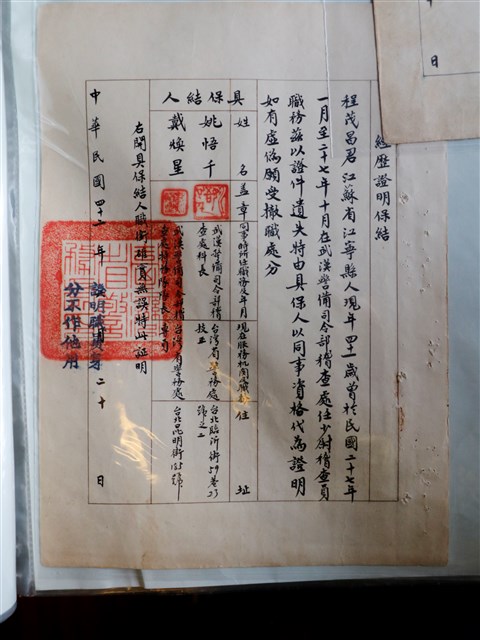 經歷證明保結
程茂昌君江蘇省江寧縣人現年四十一歲曾於民國二十七年
一月至二十七年十月在武漢警備司令部稽查處任少尉稽查員
職務茲以證件遺失特由具保人以同事資格代為證明
如有虛偽願受撤職處分
具保結人
姓名
蓋章
同事時所任職務及年月
現在服務机関及職
住址
姚悟千
武漢警備司令部稽
查處科長
台灣省警務處
技正
台北臨沂街59巷23
號之二
戴煥星
武漢警備司令部稽
台灣省警務處
台北昆明街155號
右開具保結人職銜確實無誤特此証明
證明職員身
分不作他用
中華民國四十二年
二十日
日